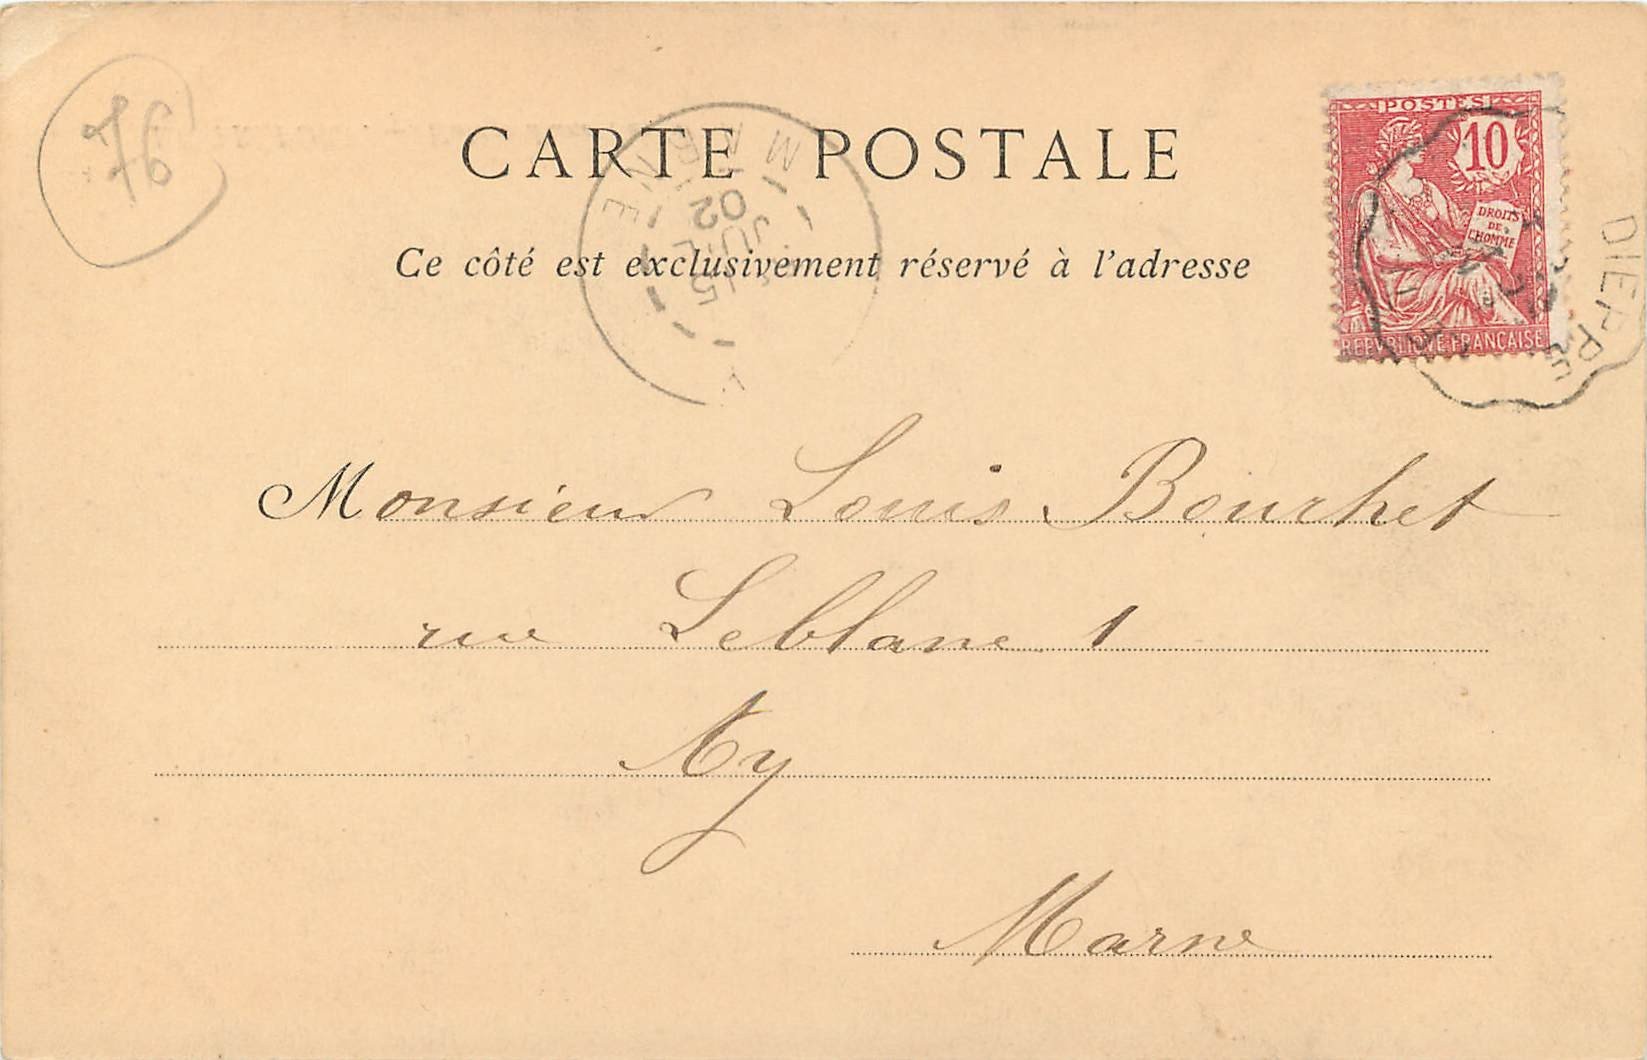 76
CARTE POSTALE
Ce côté est exclusivement réservé à l'adresse
POSTES
10
DROITS
DE
L'HOMME
REPUBLIQUE FRANÇAISE
DIEPPE
MARNE
15
JUIL
02
Monsieur Louis Bourhet
rue Leblanc 1
Ay
Marne